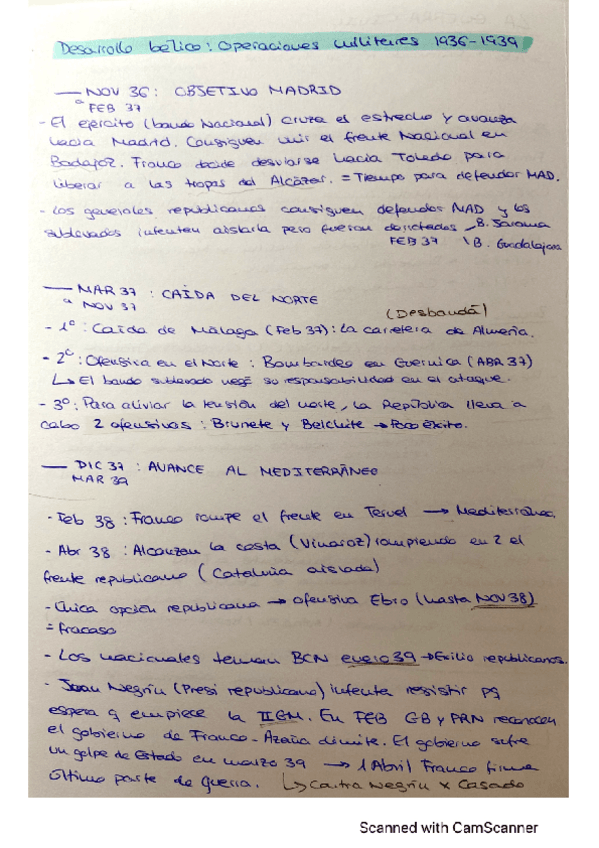 Desarrollo bélico: Operaciones militares 1936-1939
— NOV 36: OBJETIVO MADRID
a FEB 37
- El ejército (bando Nacional) cruza el estrecho y avanza
hacia Madrid. Consiguen unir el frente Nacional en
Badajoz. Franco decide desviarse hacia Toledo para
liberar a las tropas del Alcázar. = Tiempo para defender MAD.
- Los generales republicanos consiguen defender MAD y los
sublevados intentan aislarla pero fueron derrotados - B. Jarama
FEB 37 \ B. Guadalajara
— MAR 37 : CAÍDA DEL NORTE
a NOV 37
(Desbandá)
- 1º: Caída de Málaga (Feb 37): La carretera de Almería.
- 2º: Ofensiva en el Norte: Bombardeo en Guernica (ABR 37)
↳ El bando sublevado negó su responsabilidad en el ataque.
- 3º: Para aliviar la tensión del norte, la República lleva a
cabo 2 ofensivas: Brunete y Belchite → Poco éxito.
— DIC 37 : AVANCE AL MEDITERRÁNEO
MAR 39
- Feb 38: Franco rompe el frente en Teruel → Mediterráneo.
- Abr 38: Alcanzan la costa (Vinaroz) rompiendo en 2 el
frente republicano (Cataluña aislada)
- Única opción republicana → ofensiva Ebro (hasta NOV 38)
= fracaso
- Los nacionales toman BCN enero 39 → Exilio republicanos.
- Juan Negrín (Presi republicano) intenta resistir pq
espera q empiece la IIGM. En FEB GB y FRN reconocen
el gobierno de Franco - Azaña dimite. El gobierno sufre
un golpe de Estado en marzo 39 → 1 Abril Franco firma
último parte de guerra. ↳ Contra Negrín x Casado
Scanned with CamScanner